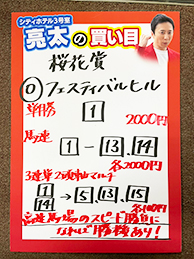 シティホテル3号室
亮太の買い目
桜花賞
◎フェスティバルヒル
単勝 1 2000円
馬連
1 − 13.14
各2000円
3連単2頭軸マルチ
1
14 → 5.13.15
各100円
高速馬場のスピード勝負に
なれば勝機あり!